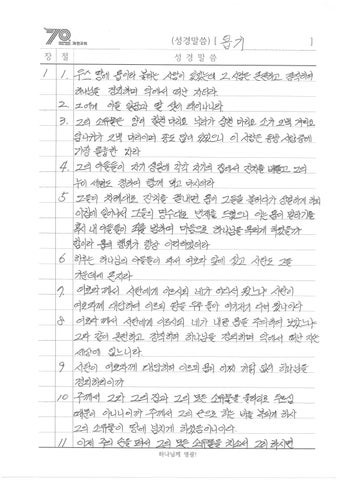 70 (성경말씀) [ 욥기 ]
장 절 성 경 말 씀
1 1. 우스 땅에 욥이라 불리는 사람이 있었는데 그 사람은 온전하고 정직하여
하나님을 경외하며 악에서 떠난 자더라
2. 그에게 아들 일곱과 딸 셋이 태어나니라
3. 그의 소유물은 양이 칠천 마리요 낙타가 삼천 마리요 소가 오백 겨리요
암나귀가 오백 마리이며 종도 많이 있었으니 이 사람은 동방 사람 중에
가장 훌륭한 자라
4. 그의 아들들이 자기 생일에 각각 자기의 집에서 잔치를 베풀고 그의
누이 세명도 청하여 함께 먹고 마시더라
5 그들이 차례대로 잔치를 끝내면 욥이 그들을 불러다가 성결하게 하되
아침에 일어나서 그들의 명수대로 번제를 드렸으니 이는 욥이 말하기를
혹시 내 아들들이 죄를 범하여 마음으로 하나님을 욕되게 하였을까
함이라 욥의 행위가 항상 이러하였더라
6 하루는 하나님의 아들들이 와서 여호와 앞에 섰고 사탄도 그들
가운데에 온지라
7. 여호와께서 사탄에게 이르시되 네가 어디서 왔느냐 사탄이
여호와께 대답하여 이르되 땅을 두루 돌아 여기저기 다녀 왔나이다
8 여호와께서 사탄에게 이르시되 네가 내 종 욥을 주의하여 보았느냐
그와 같이 온전하고 정직하여 하나님을 경외하며 악에서 떠난 자는
세상에 없느니라
9 사탄이 여호와께 대답하여 이르되 욥이 어찌 까닭 없이 하나님을
경외하리이까
10 주께서 그와 그의 집과 그의 모든 소유물을 울타리로 두르심
때문이 아니니이까 주께서 그의 손으로 하는 바를 복되게 하사
그의 소유물이 땅에 넘치게 하셨음이니이다
11 이제 주의 손을 펴서 그의 모든 소유물을 치소서 그리 하시면
하나님께 영광!